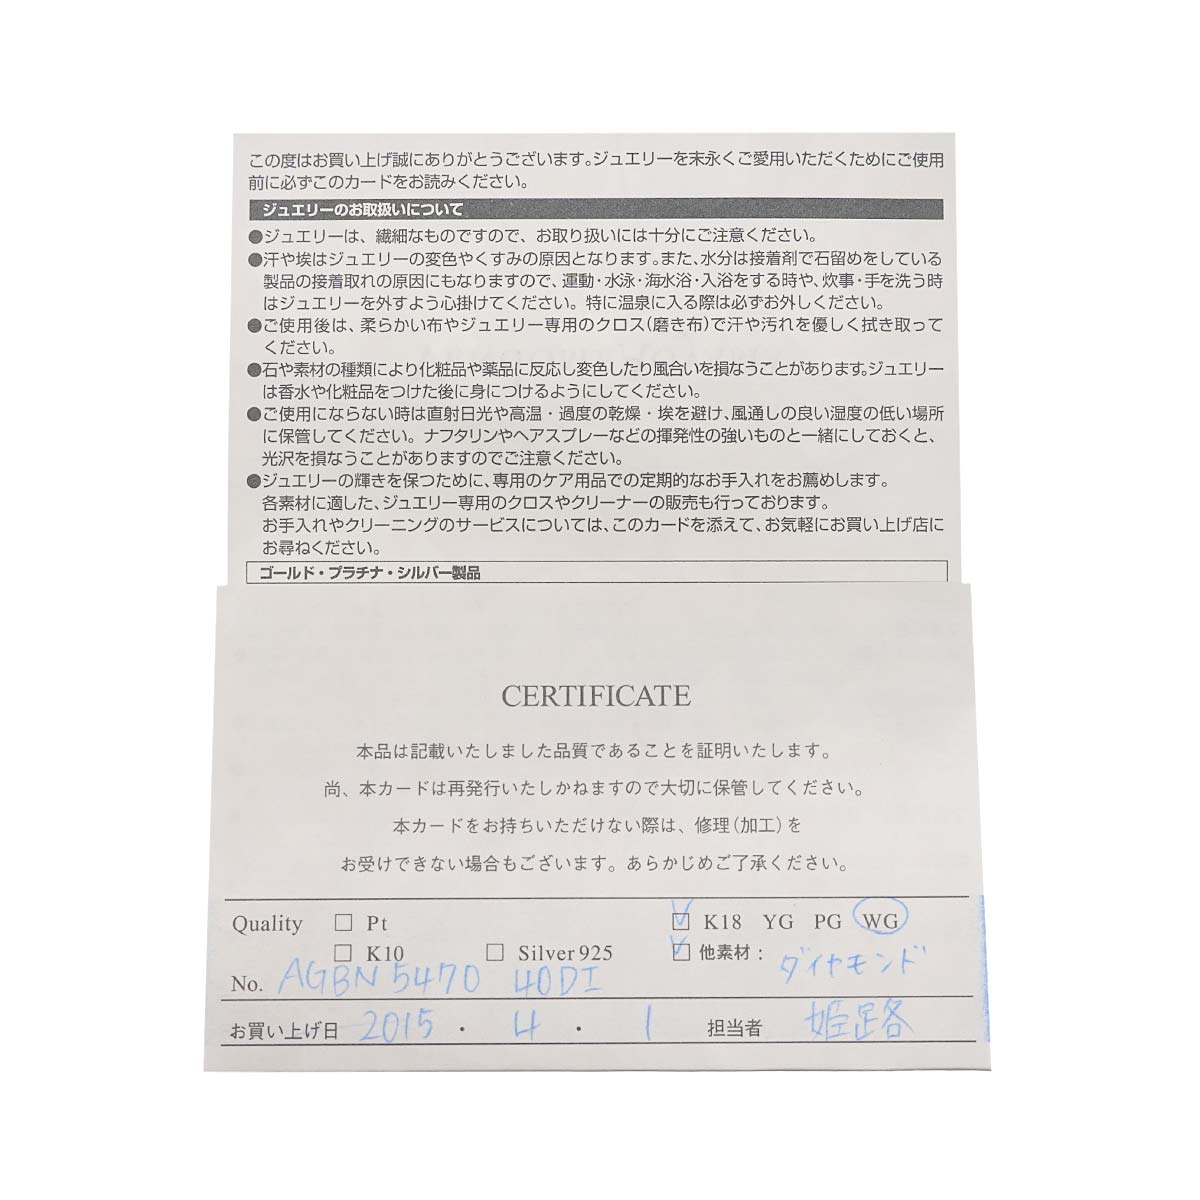 この度はお買い上げ誠にありがとうございます。ジュエリーを末永くご愛用いただくためにご使用
前に必ずこのカードをお読みください。
ジュエリーのお取扱いについて
●ジュエリーは、繊細なものですので、お取り扱いには十分にご注意ください。
●汗や埃はジュエリーの変色やくすみの原因となります。また、水分は接着剤で石留めをしている
製品の接着取れの原因にもなりますので、運動・水泳・海水浴・入浴をする時や、炊事・手を洗う時
はジュエリーを外すよう心掛けてください。特に温泉に入る際は必ずお外しください。
●ご使用後は、柔らかい布やジュエリー専用のクロス(磨き布)で汗や汚れを優しく拭き取って
ください。
●石や素材の種類により化粧品や薬品に反応し変色したり風合いを損なうことがあります。ジュエリー
は香水や化粧品をつけた後に身につけるようにしてください。
●ご使用にならない時は直射日光や高温・過度の乾燥・埃を避け、風通しの良い湿度の低い場所
に保管してください。ナフタリンやヘアスプレーなどの揮発性の強いものと一緒にしておくと、
光沢を損なうことがありますのでご注意ください。
●ジュエリーの輝きを保つために、専用のケア用品での定期的なお手入れをお薦めします。
各素材に適した、ジュエリー専用のクロスやクリーナーの販売も行っております。
お手入れやクリーニングのサービスについては、このカードを添えて、お気軽にお買い上げ店に
お尋ねください。
ゴールド・プラチナ・シルバー製品
CERTIFICATE
本品は記載いたしました品質であることを証明いたします。
尚、本カードは再発行いたしかねますので大切に保管してください。
本カードをお持ちいただけない際は、修理(加工)を
お受けできない場合もございます。あらかじめご了承ください。
Quality □ Pt ☑ K18 YG PG WG
□ K10 □ Silver925 ☑ 他素材: ダイヤモンド
No. AGBN 5470 40DI
お買い上げ日 2015 ・ 4 ・ 1 担当者 姫路